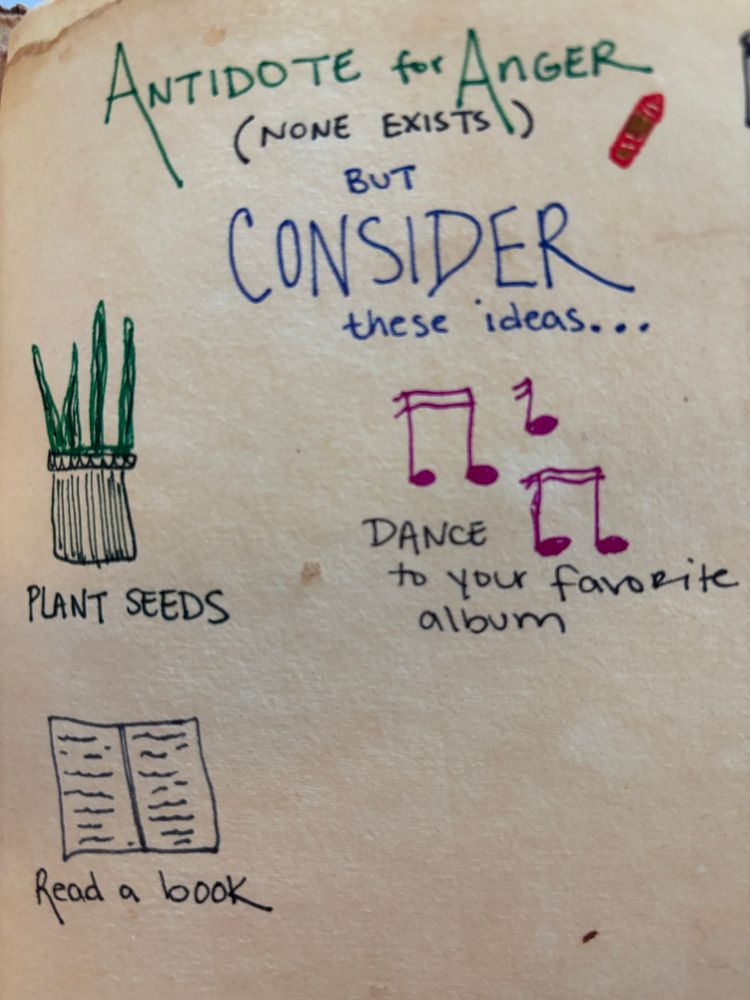 ANTIDOTE for ANGER
(NONE EXISTS)
BUT
CONSIDER
these ideas...
PLANT SEEDS
DANCE
to your favorite
album
Read a book